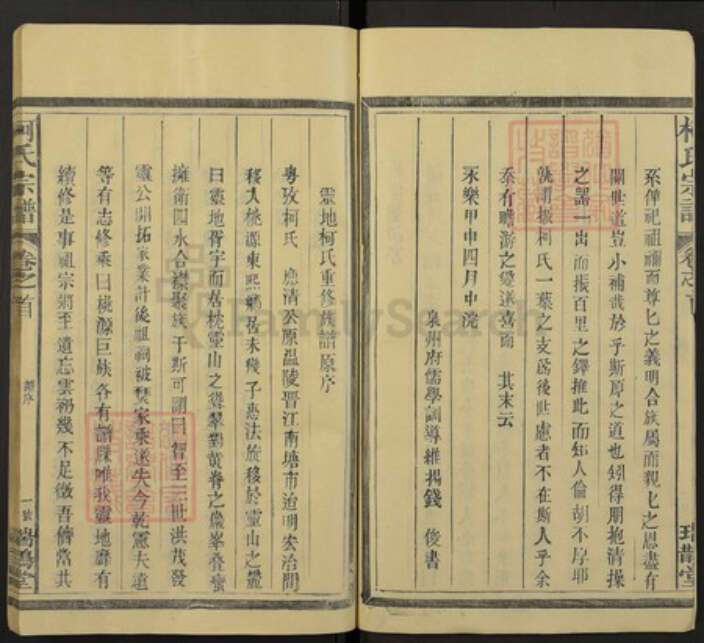 柯氏宗譜
卷之首
瑞鵲堂
系俾祀祖禰而尊匕之義明合族屬而親匕之恩盡有
關世道豈小補哉於乎斯厚之道也矧得朋抱清操
之器一出而振百里之鐸推此而知人倫胡不厚耶
就謂撥柯氏一葉之支為後世慮者不在斯人乎余
忝有瞻游之愛遂喜而 其末云
永樂甲申四月中浣
泉州府儒學訓導維揚錢 俊書
靈地柯氏重修族譜原序
粵攷柯氏 應清公原溫陵晋江南塘市迨明宏治間
移入桃源東熙 居未幾子惠法旋移於靈山之麓
曰靈地胥宇而居枕靈山之聳翠對黃脊之巍峯叠巒
擁衛四水合襟聚族于斯可謂曰智至三世洪茂發
靈公開拓家業計後祖祠被焚家乘遂失今乾憲夫遠
等有志修乘曰桃源巨族各有譜牒唯我靈地靡有
續修是事祖宗弼至遺忘雲礽幾不足徵吾儕當共
柯氏宗譜
卷之首
譜序
一號
瑞鵲堂
FamilySearch